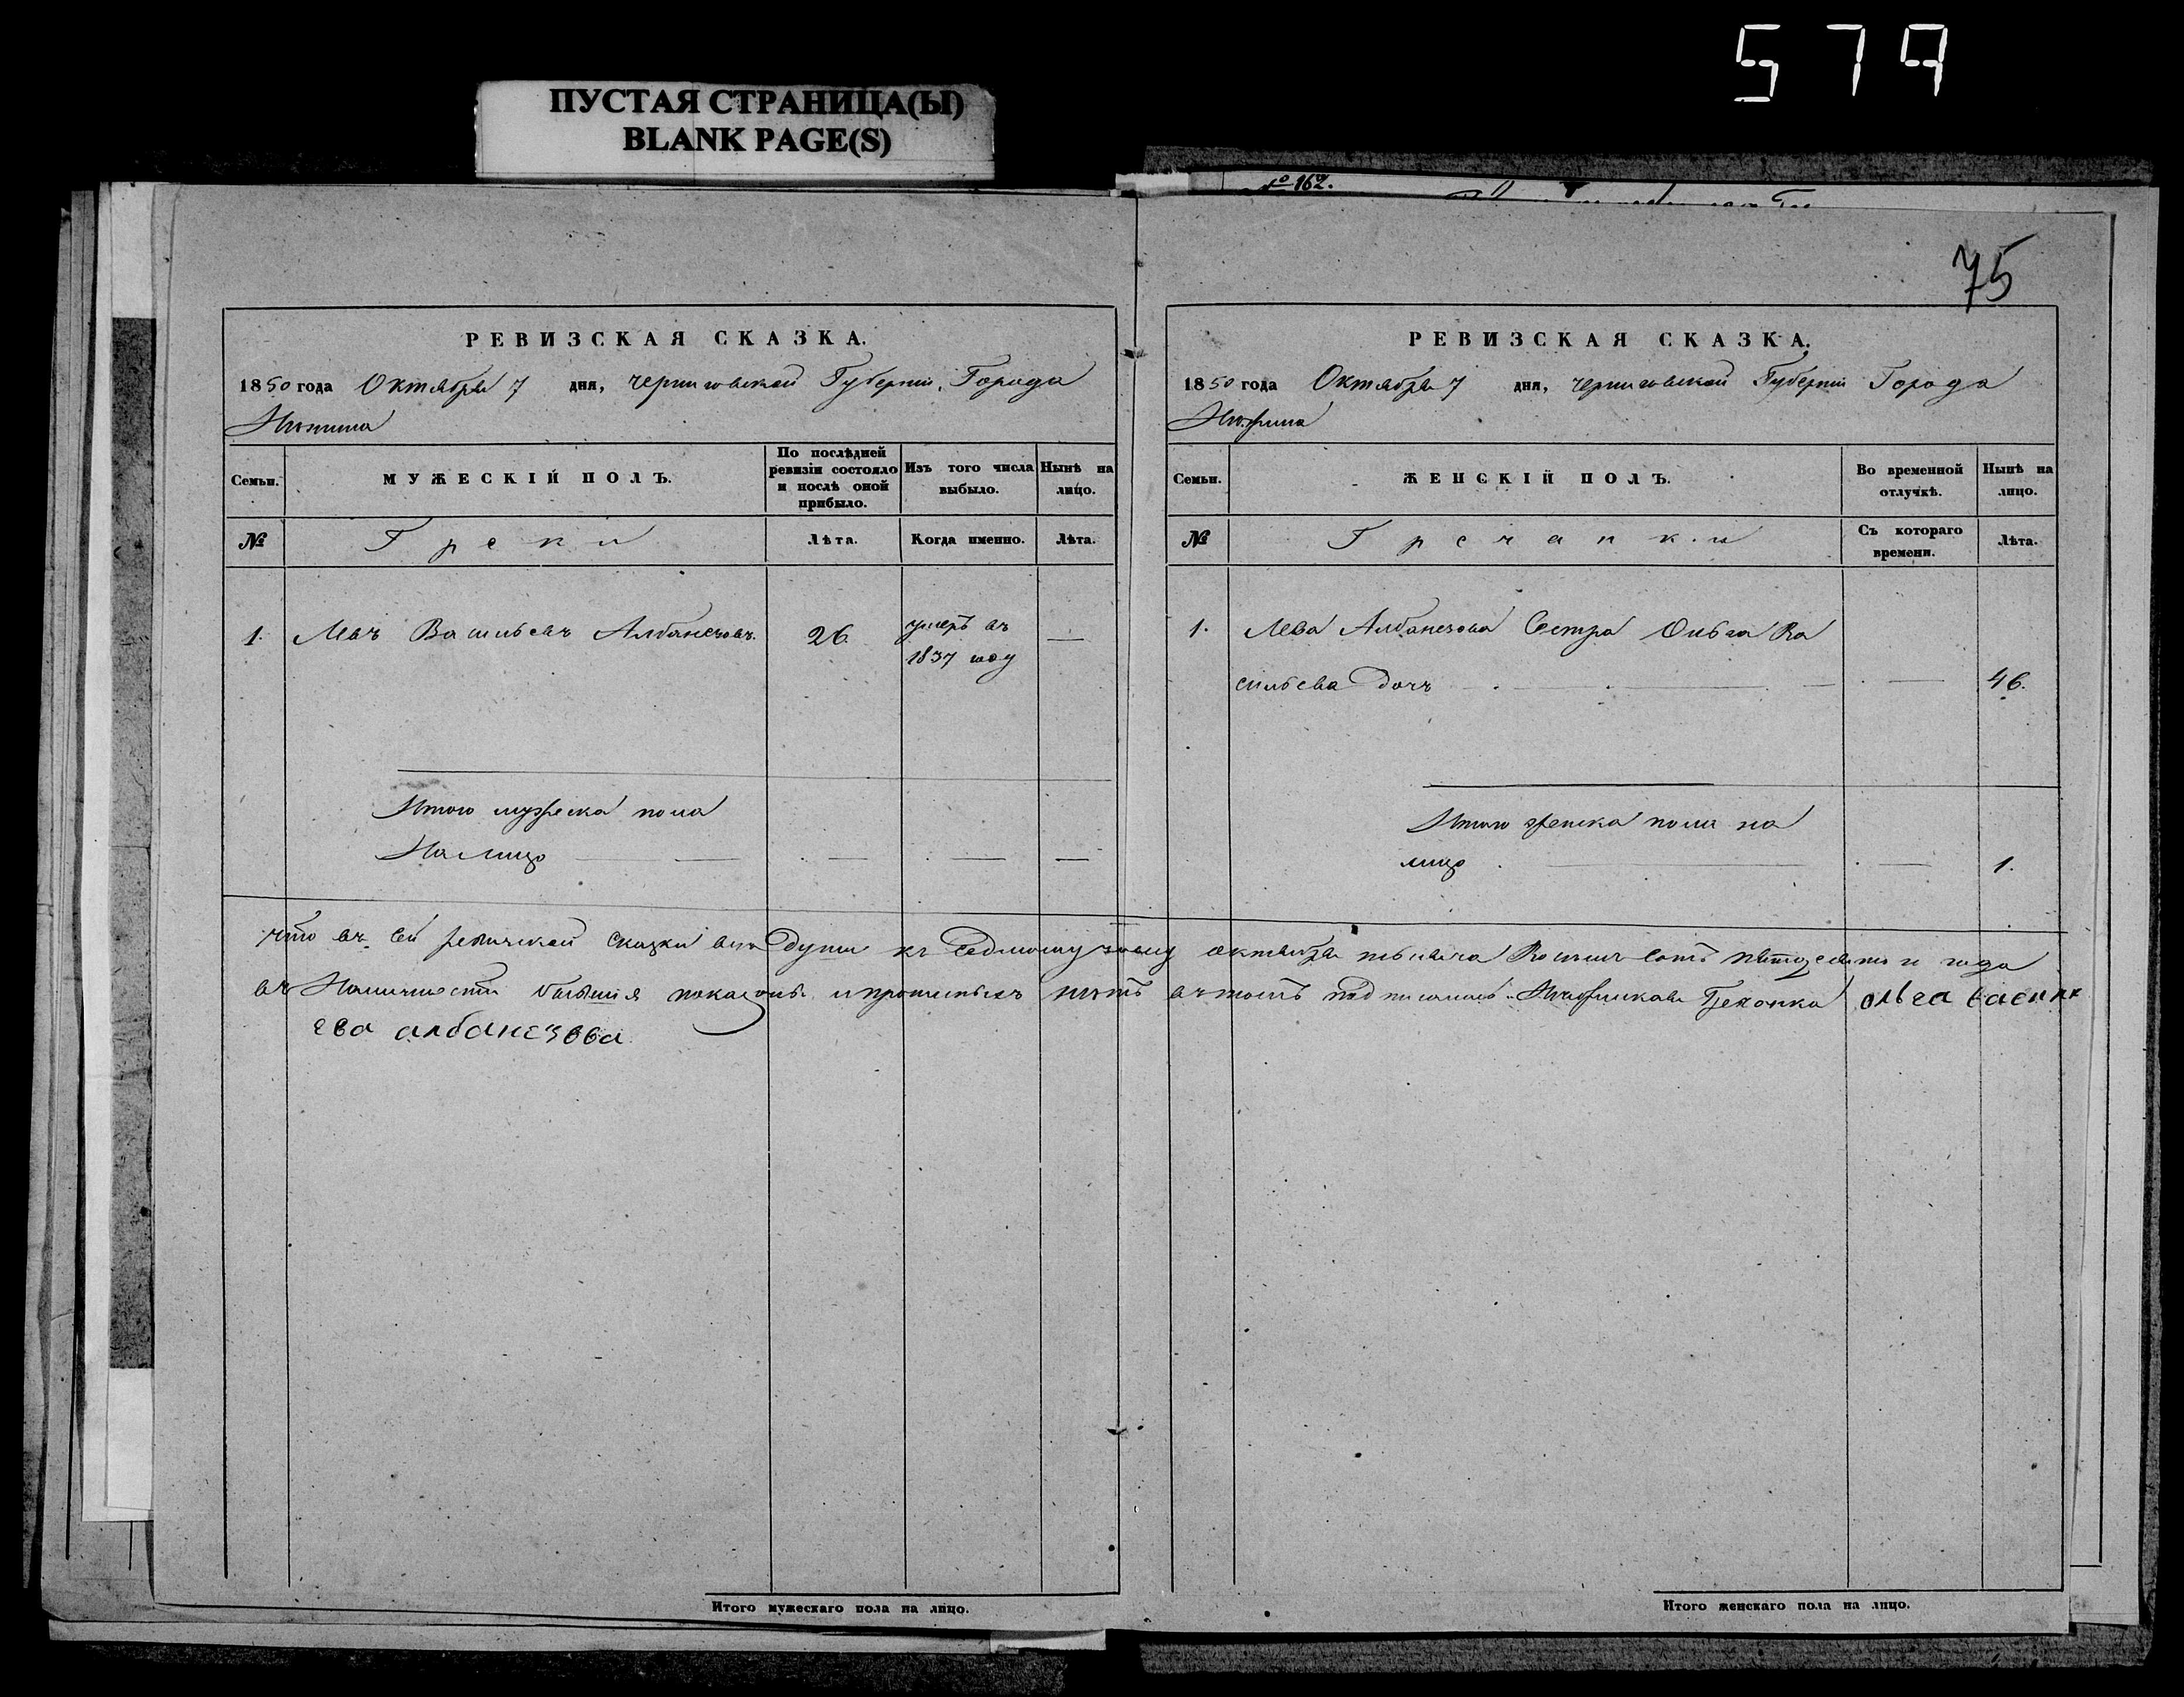 579
ПУСТАЯ СТРАНИЦА(Ы)
BLANK PAGE(S)
№ 162.
75
РЕВИЗСКАЯ СКАЗКА.
1850 года Октября 7 дня, Черниговской Губернии, Города
Нѣжина
Семьи.
МУЖЕСКІЙ ПОЛЪ.
По послѣдней ревизіи состояло и послѣ оной прибыло.
Изъ того числа выбыло.
Нынѣ на лицо.
№
Греки
Лѣта.
Когда именно.
Лѣта.
1. Левъ Васильевъ Албанезовъ. 26. умеръ въ —
1837 году
Итого мужеска пола
На лицо — — — — —
РЕВИЗСКАЯ СКАЗКА.
1850 года Октября 7 дня, Черниговской Губернии Города
Нѣжина
Семьи.
ЖЕНСКІЙ ПОЛЪ.
Во временной отлучкѣ.
Нынѣ на лицо.
№
Гречанки
Съ котораго времени.
Лѣта.
1. Лева Албанезова Сестра Ольга Ва
сильева дочь — — — 46.
Итого женска пола на
лицо — — 1.
что въ сей ревизской сказки все души къ седмому числу октября тысяча восемь сотъ пятдесятого года
въ Наличности бывшия показаны и прописныхъ нѣтъ въ томъ подписалась Нѣжинская Гречанка ольга василь
ева албанезова
Итого мужескаго пола на лицо.
Итого женскаго пола на лицо.